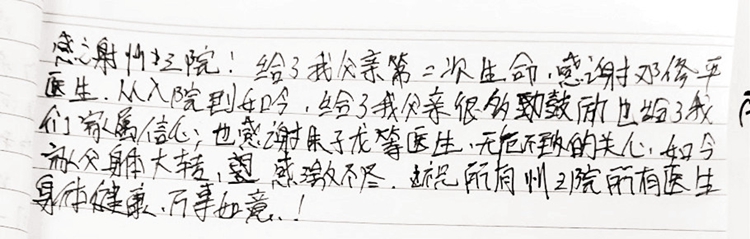 感谢州立院！给了我父亲第二次生命，感谢邓修平
医生．从入院到如今，给了我父亲很多鼓励也给了我
们家属信心；也感谢朱子龙等医生，无危不致的关心，如今
父身体大转，感激不尽．祝所有州立院所有医生
身体健康，万事如意！